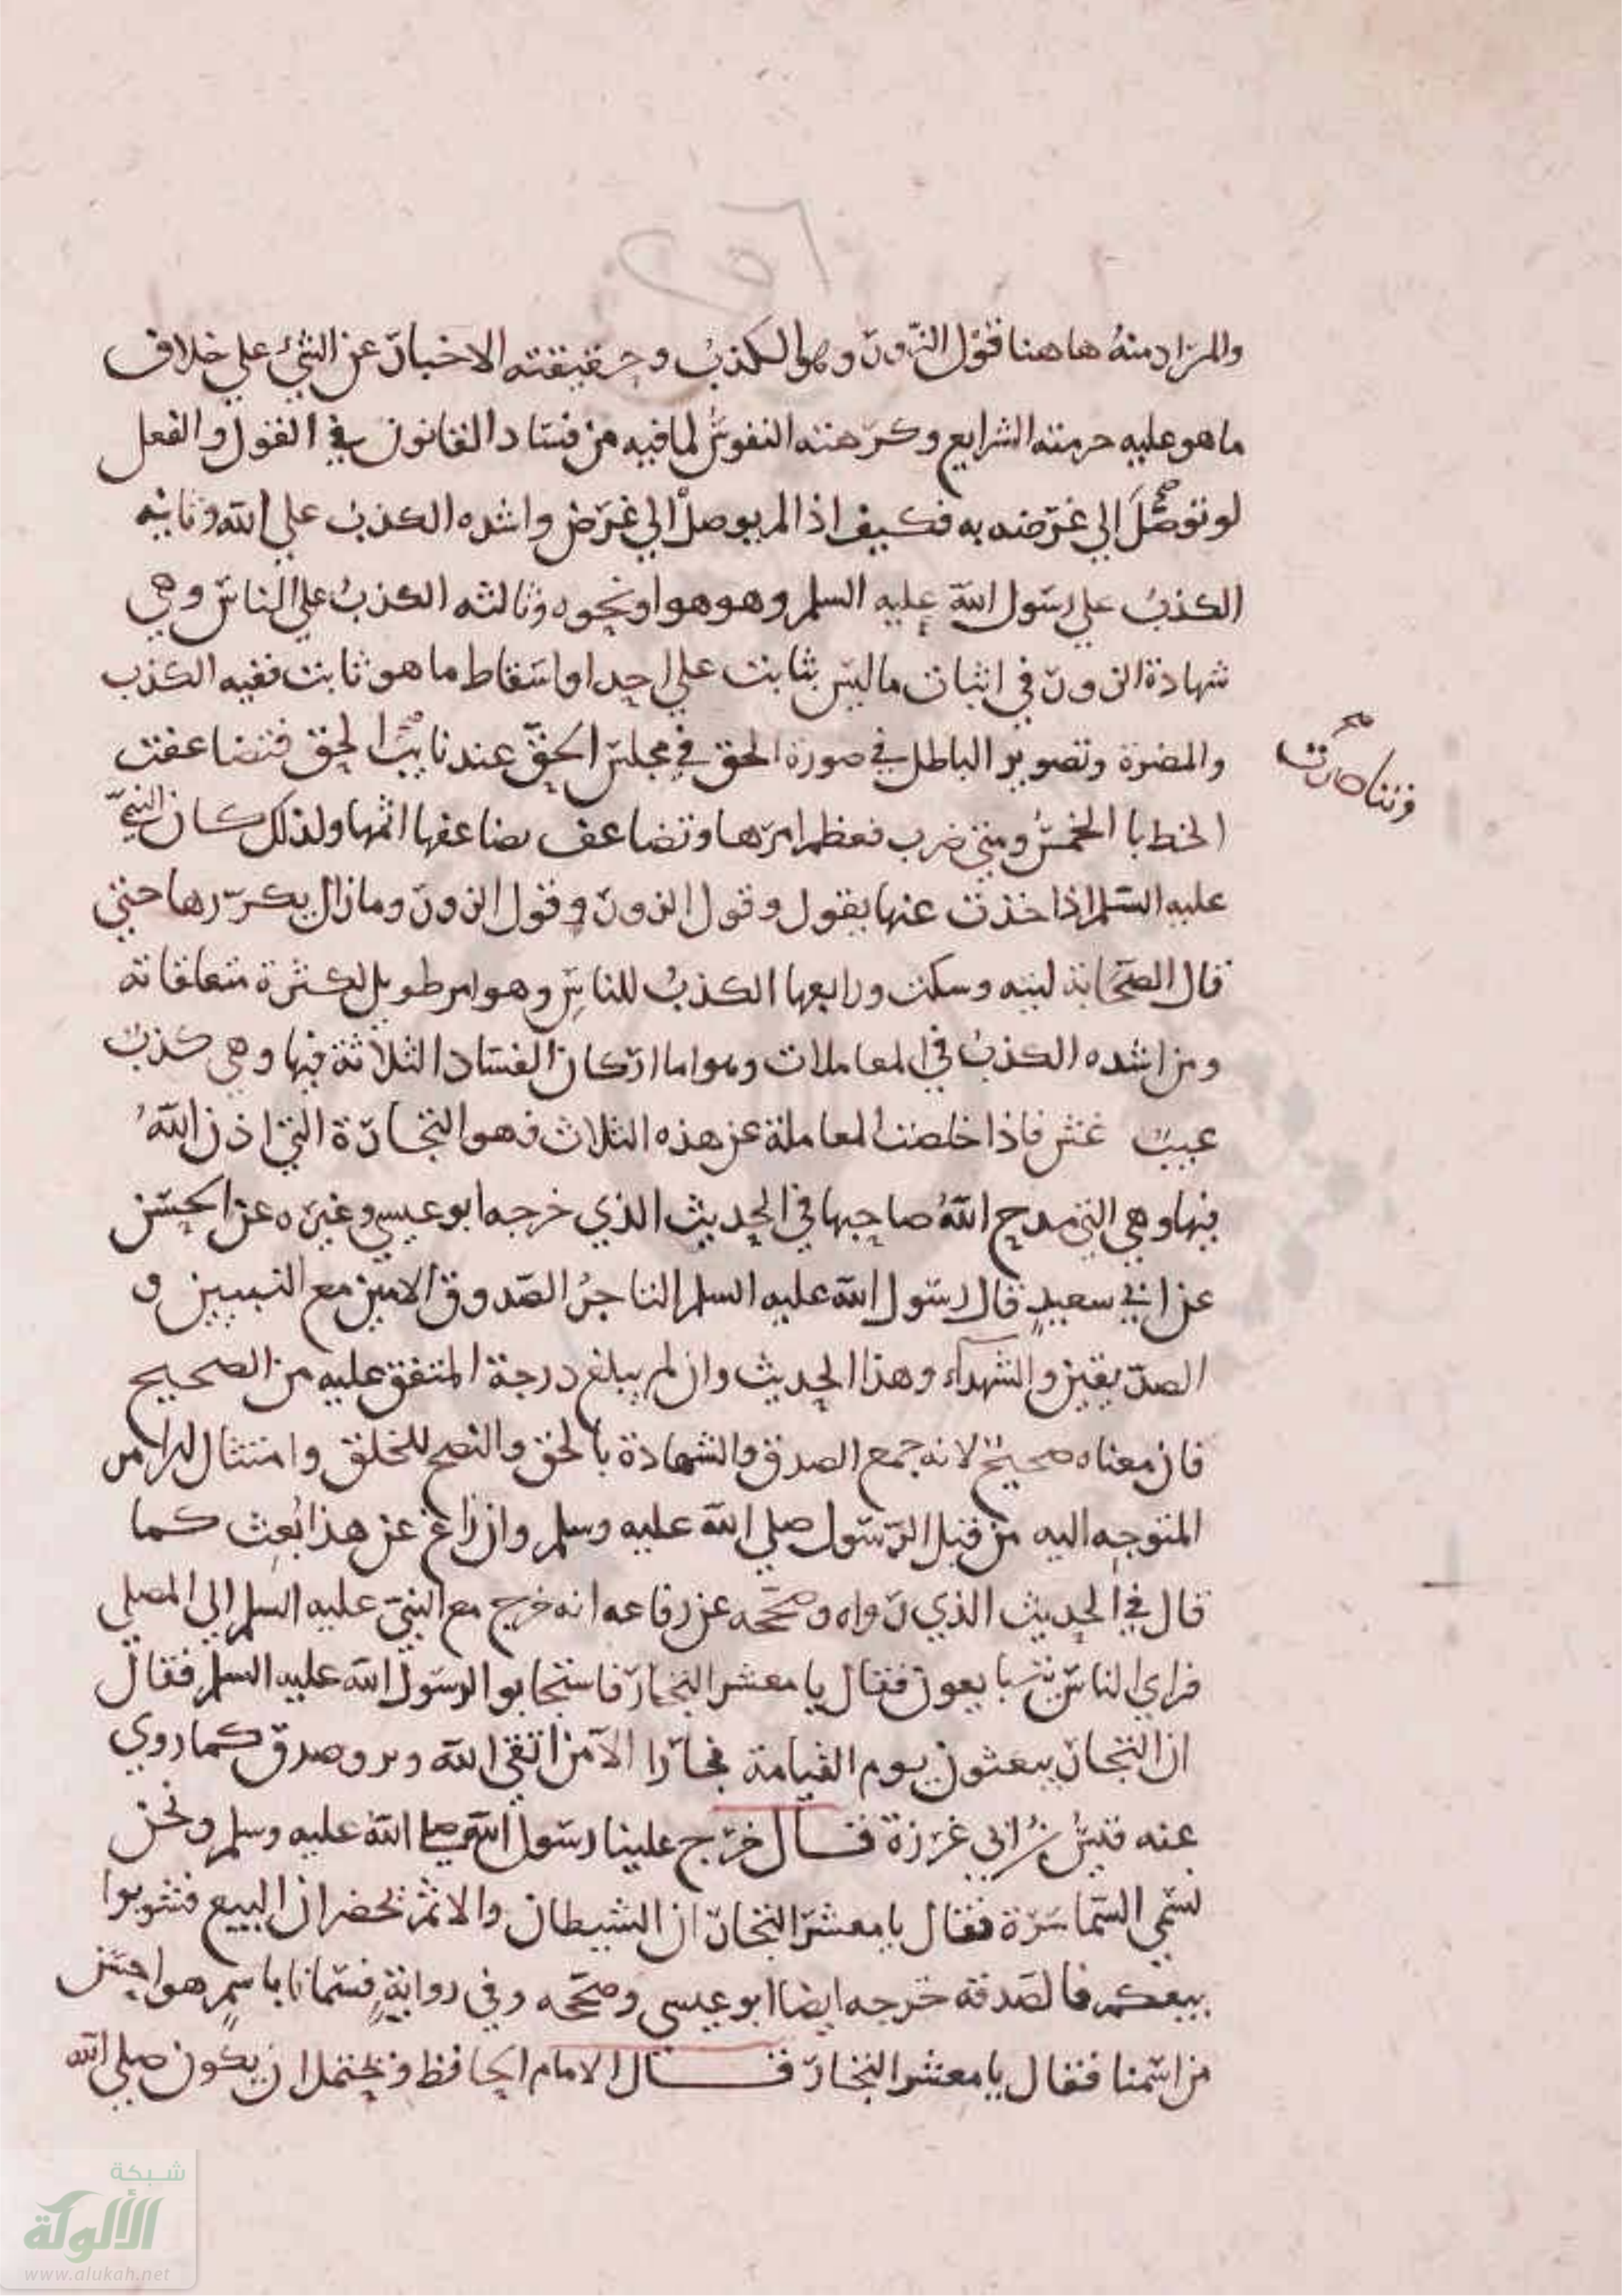 والمراد منه هاهنا قول الزور وهو الكذب وحقيقته الاخبار عن الشيء علي خلاف
ما هو عليه حرمته الشرايع وكرهته النفوس لما فيه من فساد القانون في القول والفعل
لو توصل الي غرضه به فكيف اذا لم يوصل الي غرض واشده الكذب علي الله وثانيه
الكذب علي رسول الله عليه السلم وهو هو او نحوه وثالثه الكذب علي الناس وهي
شهادة الزور في اثبات ما ليس بثابت علي احد او اسقاط ما هو ثابت ففيه الكذب
والمضرة وتصوير الباطل في صورة الحق في مجلس الحق عند نايب الحق فتضاعفت
الخطايا الخمس ومتي ضرب فعظم امرها وتضاعف بضاعفها اثمها ولذلك كان النبي
عليه السلم اذا حدث عنها يقول وقول الزور وقول الزور وما زال يكررها حتي
قال الصحابة ليته وسكت ورابعها الكذب للناس وهو امر طويل لكثرة متعلقاته
ومن اشده الكذب في المعاملات وهو اما اركان الفساد الثلاثة فيها وهي كذب
عيب غش فاذا خلصت المعاملة عن هذه الثلاث فهو التجارة التي اذن الله
فيها وهي التي مدح الله صاحبها في الحديث الذي خرجه ابو عيسي وغيره عن الحسن
عن ابي سعيد قال رسول الله عليه السلم التاجر الصدوق الامين مع النبيين و
الصديقين والشهداء وهذا الحديث وان لم يبلغ درجة المتفق عليه من الصحيح
فان معناه صحيح لانه جمع الصدق والشهادة بالحق والنصح للخلق وامتثال الامر
المتوجه اليه من قبل الرسول صلي الله عليه وسلم وان زاغ عن هذا بعث كما
قال في الحديث الذي رواه وصححه عن رفاعه انه خرج مع النبي عليه السلم الي المصلي
فراي الناس يتبايعون فقال يا معشر التجار فاستجابوا لرسول الله عليه السلم فقال
ان التجار يبعثون يوم القيامة فجارا الا من اتقي الله وبر وصدق كما روي
عنه قيس بن ابي غرزة قال خرج علينا رسول الله صلى الله عليه وسلم ونحن
نسمي السماسرة فقال يا معشر التجار ان الشيطان والاثم يحضران البيع فشوبوا
بيعكم بالصدقة خرجه ايضا ابو عيسي وصححه وفي رواية فسمانا باسم هو احسن
من اسمنا فقال يا معشر التجار قال الامام الحافظ ويحتمل ان يكون صلي الله
شبكة
الألوكة
www.alukah.net